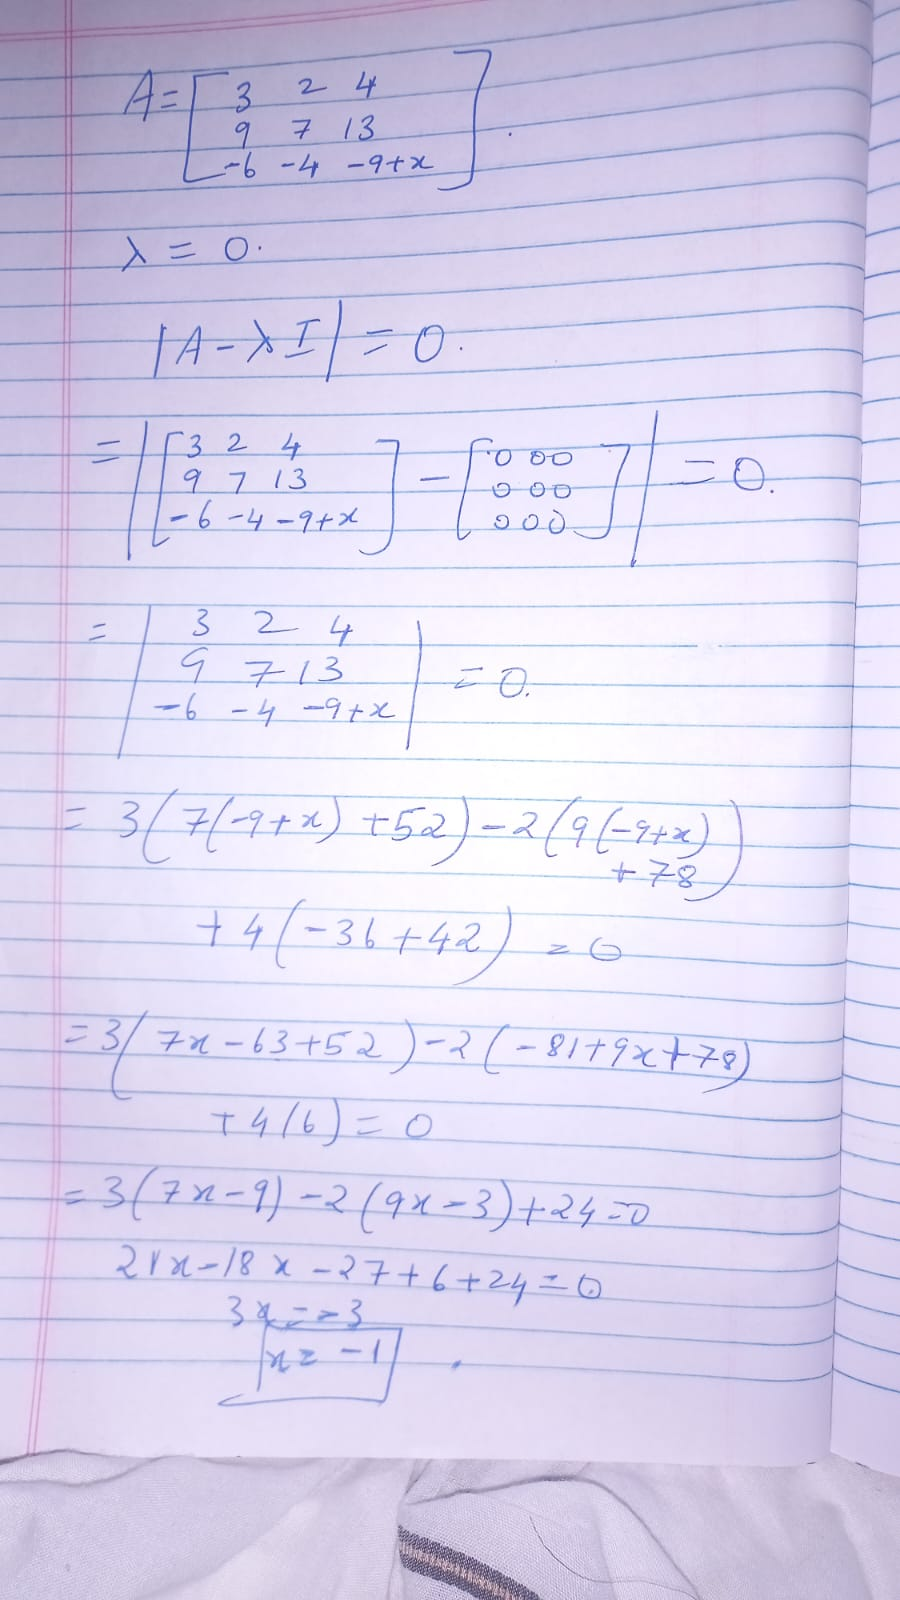 A = [ 3 2 4
9 7 13
-6 -4 -9+x ] .
λ = 0.
|A - λI| = 0.
= | [ 3 2 4
9 7 13
-6 -4 -9+x ] - [ 0 0 0
0 0 0
0 0 0 ] | = 0.
= | 3 2 4
9 7 13
-6 -4 -9+x | = 0.
= 3(7(-9+x) +52) -2(9(-9+x)
+78)
+4(-36+42) = 0
= 3(7x-63+52) -2(-81+9x+78)
+4(6) = 0
= 3(7x-9) -2(9x-3)+24=0
21x-18x-27+6+24=0
3x=-3
x= -1 .